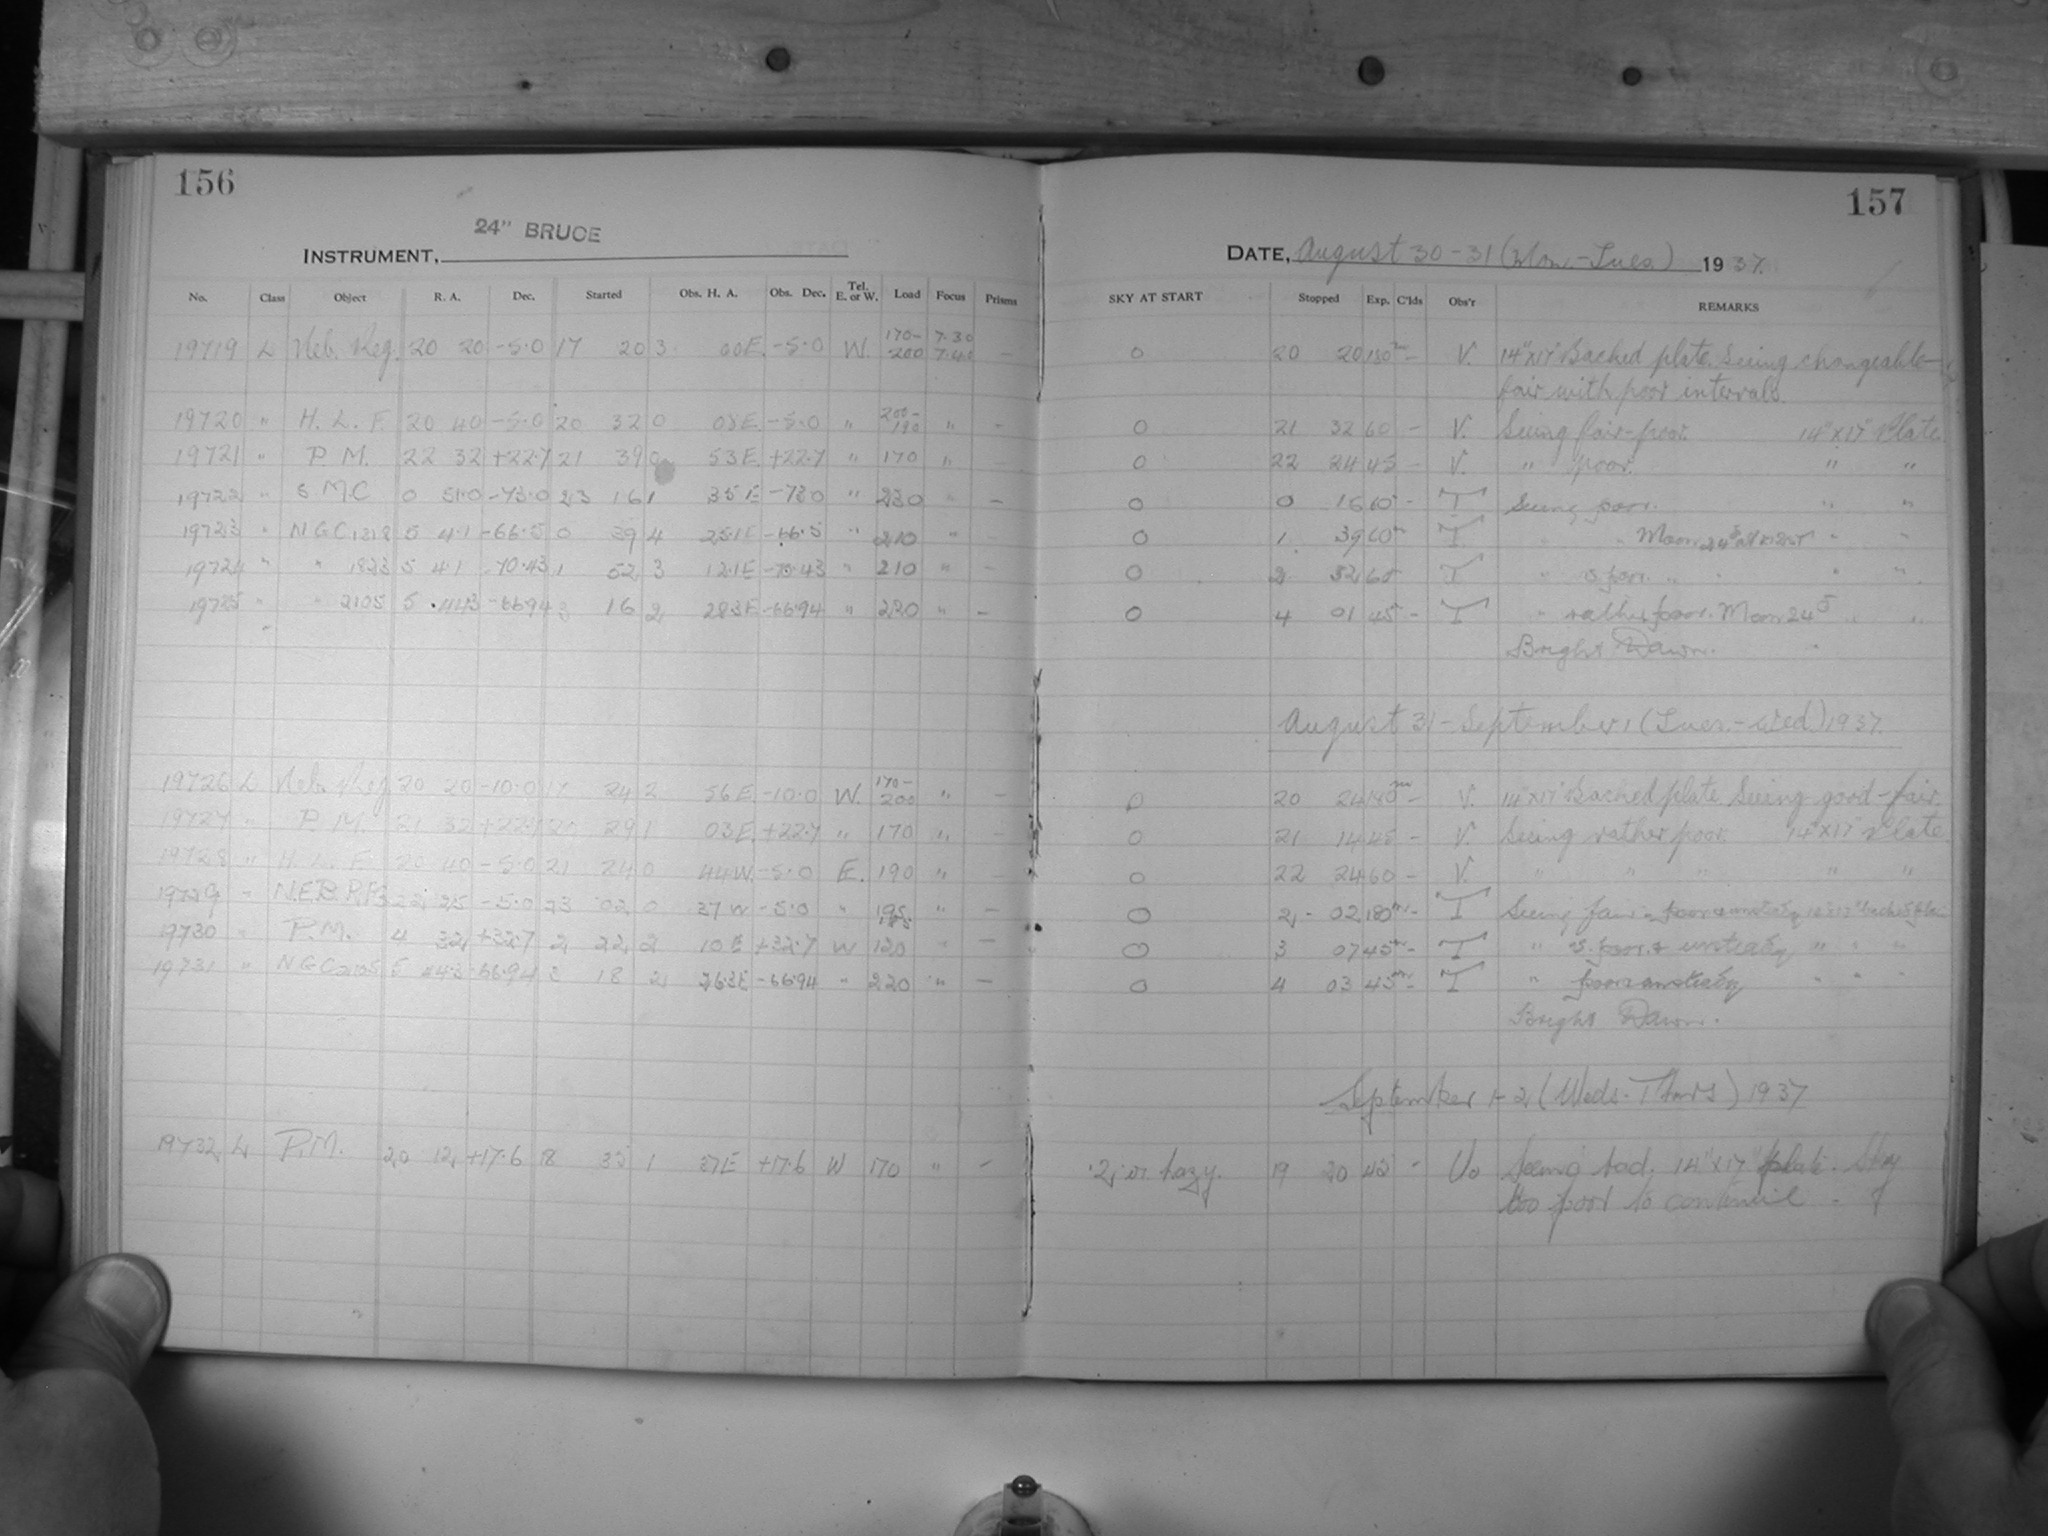 156
24" BRUCE
INSTRUMENT,
No. Class Object R. A. Dec. Started Obs. H. A. Obs. Dec. Tel. E. or W. Load Focus Prisms
19719 L Neb. Reg. 20 20 -5.0 17 20 3 00E. -5.0 W. 170-200 7.30 7.40 -
19720 " H. L. F. 20 40 -5.0 20 32 0 08E. -5.0 " 200-190 " -
19721 " P. M. 22 32 +22.7 21 39 0 53E. +22.7 " 170 " -
19722 " S M C 0 51.0 -73.0 23 16 1 35E -73.0 " 230 " -
19723 " NGC 5 4.1 -66.5 0 39 4 25.1E -66.5 " 210 " -
19724 " " 1823 5 4.1 -70.43 1 52 3 12.1E -70.43 " 210 " -
19725 " " 2105 5 44.3 -66.94 3 16 2 28.3E -66.94 " 220 " -
19726 L Neb. Reg 20 20 -10.0 17 24 2 56E. -10.0 W. 170-200 " -
19727 " P. M. 21 32 +22.7 20 29 1 03E. +22.7 " 170 " -
19728 " H. L. F. 20 40 -5.0 21 24 0 44W. -5.0 E. 190 " -
19729 " NEB. 22 25 -5.0 23 02 0 37W -5.0 " 195 " -
19730 " P.M. 4 32 +32.7 2 22 2 10E +32.7 W 120 " -
19731 " NGC 2105 5 44.3 -66.94 3 18 2 26.3E -66.94 " 220 " -
19732 L P.M. 20 12 +17.6 18 35 1 37E +17.6 W 170 " -
157
DATE, August 30-31 (Mon.-Tues.) 1937.
SKY AT START Stopped Exp. C'lds Obs'r REMARKS
0 20 20 180m - V. 14"x17" Backed plate. Seeing changeable-
fair with poor intervals.
0 21 32 60 - V. Seeing fair-poor. 14"x17" Plate.
0 22 24 45 - V. " poor. " "
0 0 16 60 - T Seeing poor. " "
0 1 39 60m T " " Moon 24d " "
0 2 52 60 T " " "
0 4 01 45 - T " rather poor. Moon 24d " "
Bright Dawn.
August 31-September 1 (Tues.-Wed.) 1937.
0 20 24 180m - V. 14"x17" Backed plate Seeing good-fair.
0 21 14 45 - V. Seeing rather poor. 14"x17" Plate
0 22 24 60 - V. " " " " "
0 2 02 180m - T Seeing fair - poor & unsteady
0 3 07 45m - T " & unsteady " " "
0 4 03 45m - T " poor & unsteady " " "
Bright Dawn.
September 1-2 (Weds-Thurs) 1937
2, or hazy. 19 20 45 - Vo Seeing bad. 14"x17" plate. Sky
too poor to continue.